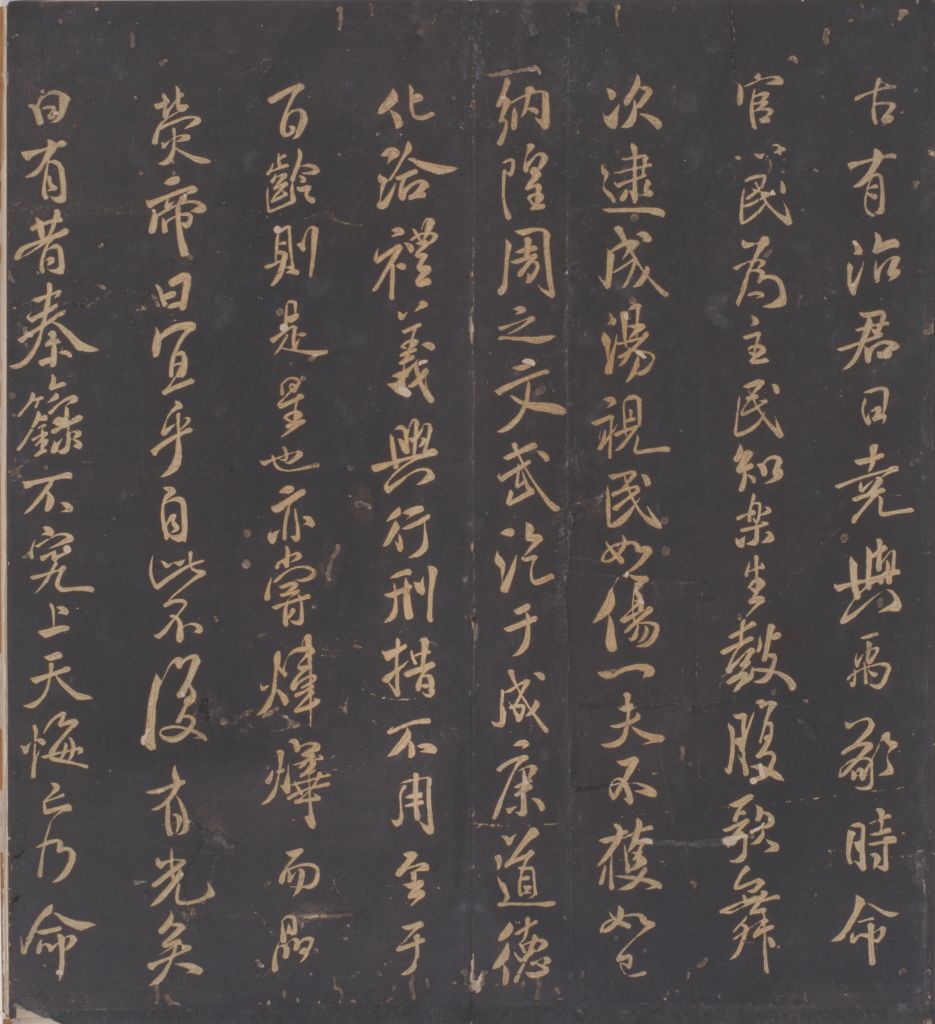 古有治君曰堯與禹敬時命
官以民為主民知樂生鼓腹歌舞
次逮成湯視民如傷一夫不獲如己
納隍周之文武訖于成康道德
化洽禮義興行刑措不用至于
百齡則是星也亦嘗煒燁而晶
熒帝曰宜乎自此不復有光矣
曰有昔秦籙不究上天悔亡乃命